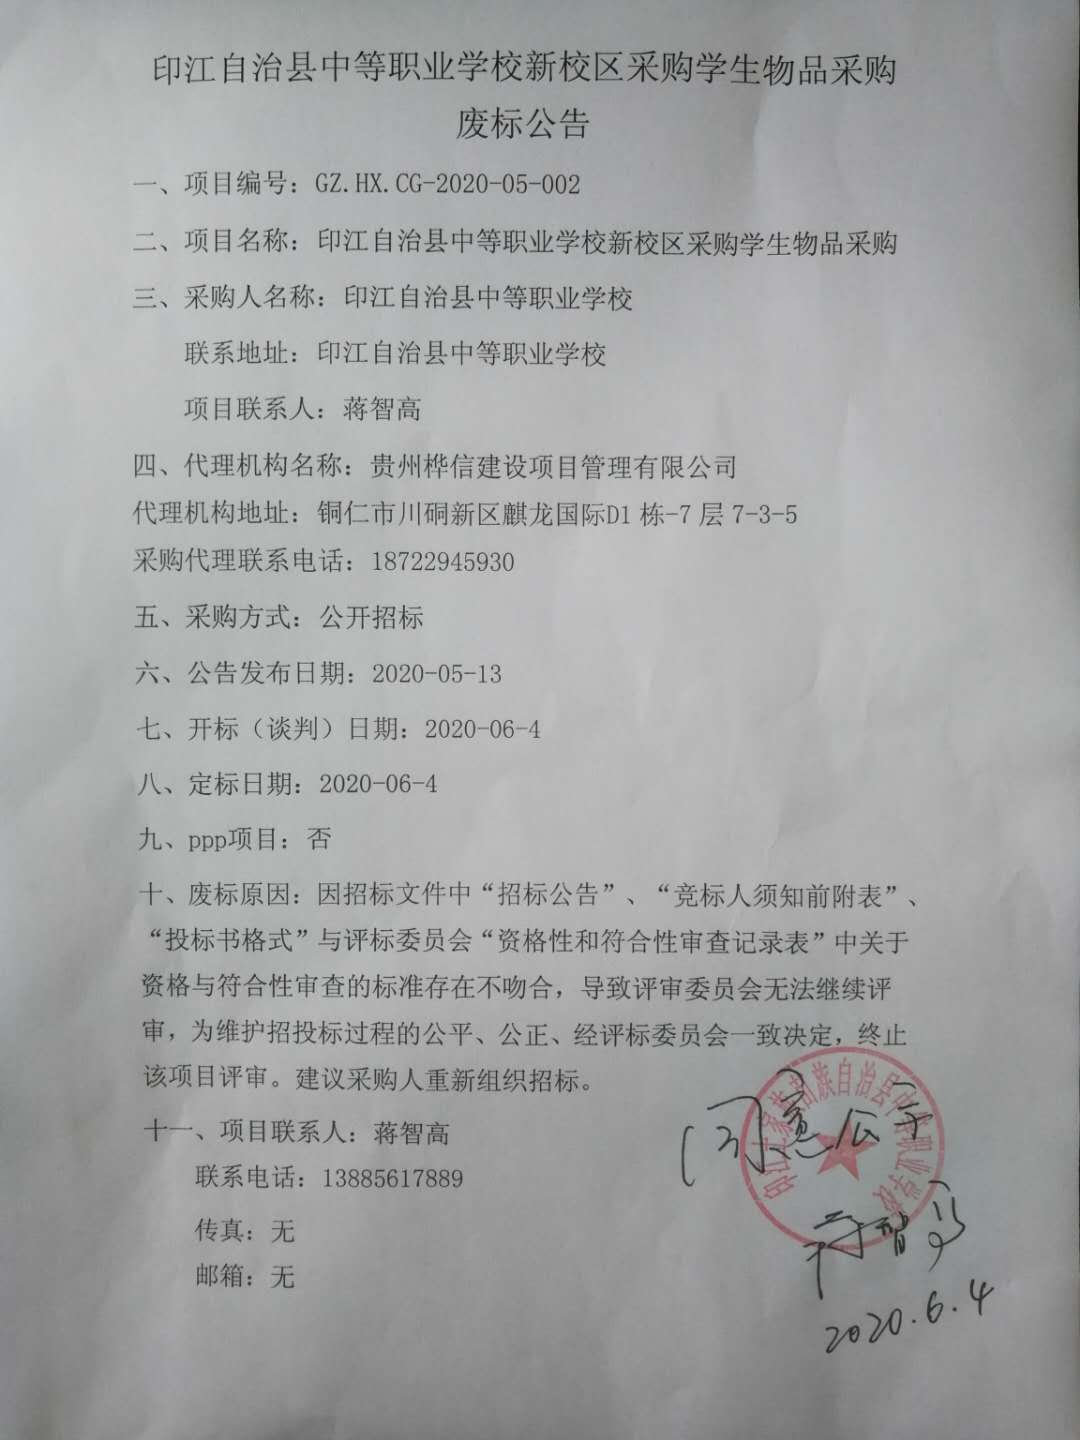 印江自治县中等职业学校新校区采购学生物品采购
废标公告
一、项目编号：GZ.HX.CG-2020-05-002
二、项目名称：印江自治县中等职业学校新校区采购学生物品采购
三、采购人名称：印江自治县中等职业学校
联系地址：印江自治县中等职业学校
项目联系人：蒋智高
四、代理机构名称：贵州桦信建设项目管理有限公司
代理机构地址：铜仁市川硐新区麒龙国际D1 栋-7 层 7-3-5
采购代理联系电话：18722945930
五、采购方式：公开招标
六、公告发布日期：2020-05-13
七、开标（谈判）日期：2020-06-4
八、定标日期：2020-06-4
九、ppp项目：否
十、废标原因：因招标文件中“招标公告”、“竞标人须知前附表”、
“投标书格式”与评标委员会“资格性和符合性审查记录表”中关于
资格与符合性审查的标准存在不吻合，导致评审委员会无法继续评
审，为维护招投标过程的公平、公正、经评标委员会一致决定，终止
该项目评审。建议采购人重新组织招标。
十一、项目联系人：蒋智高
联系电话：13885617889
传真：无
邮箱：无
印江土家族苗族自治县中等职业学校
同意公示
蒋智高
2020.6.4